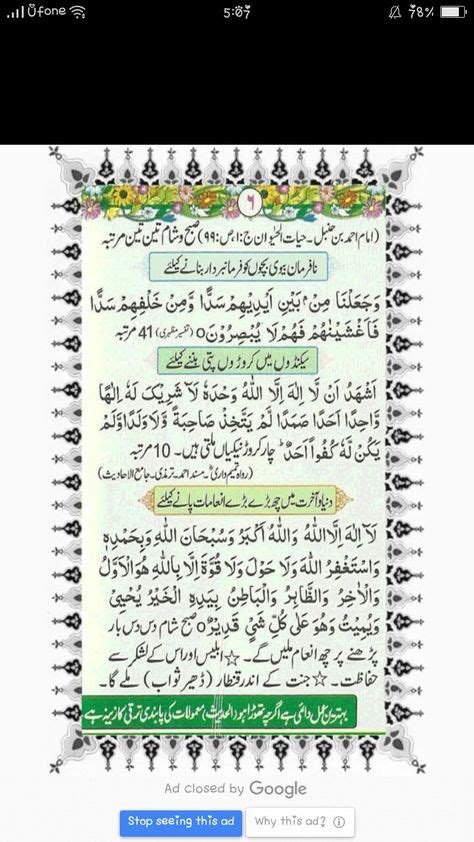 Ufone
5:07
78%
٦
(امام احمد بن حنبل۔ حیات الحیوان ج:۱ ص:۹۹) صبح و شام تین تین مرتبہ
نافرمان بیوی بچوں کو فرمانبردار بنانے کیلئے
وَجَعَلْنَا مِنْۢ بَيْنِ اَيْدِيْهِمْ سَدًّا وَّمِنْ خَلْفِهِمْ سَدًّا
فَاَغْشَيْنٰهُمْ فَهُمْ لَا يُبْصِرُوْنَ○ (تفسیر مظہری) 41 مرتبہ
سیکنڈوں میں کروڑوں پتی بننے کیلئے
اَشْهَدُ اَنْ لَّا اِلٰهَ اِلَّا اللّٰهُ وَحْدَهٗ لَا شَرِيْكَ لَهٗ اِلٰهًا
وَّاحِدًا اَحَدًا صَمَدًا لَّمْ يَتَّخِذْ صَاحِبَةً وَّلَا وَلَدًا وَّلَمْ
يَكُنْ لَّهٗ كُفُوًا اَحَدٌ چار کروڑ نیکیاں ملتی ہیں۔ 10 مرتبہ
(رواہ تمیم داری۔ مسند احمد۔ ترمذی۔ جامع الاحادیث)
دنیا و آخرت میں چھ بڑے بڑے انعامات پانے کیلئے
لَآ اِلٰهَ اِلَّا اللّٰهُ وَاللّٰهُ اَكْبَرُ وَسُبْحَانَ اللّٰهِ وَبِحَمْدِهٖ
وَاسْتَغْفِرُ اللّٰهَ وَلَا حَوْلَ وَلَا قُوَّةَ اِلَّا بِاللّٰهِ هُوَ الْاَوَّلُ
وَالْاٰخِرُ وَالظَّاهِرُ وَالْبَاطِنُ بِيَدِهِ الْخَيْرُ يُحْيِيْ
وَيُمِيْتُ وَهُوَ عَلٰى كُلِّ شَيْءٍ قَدِيْرٌ○ صبح شام دس دس بار
پڑھنے پر چھ انعام ملیں گے۔ ☆ ابلیس اور اس کے لشکر سے
حفاظت۔ ☆ جنت کے اندر قنطار (ڈھیر ثواب) ملے گا۔
بہترین عمل دائمی ہے اگرچہ تھوڑا ہو (الحدیث) معمولات کی پابندی ترقی کا زینہ ہے
Ad closed by Google
Stop seeing this ad
Why this ad?